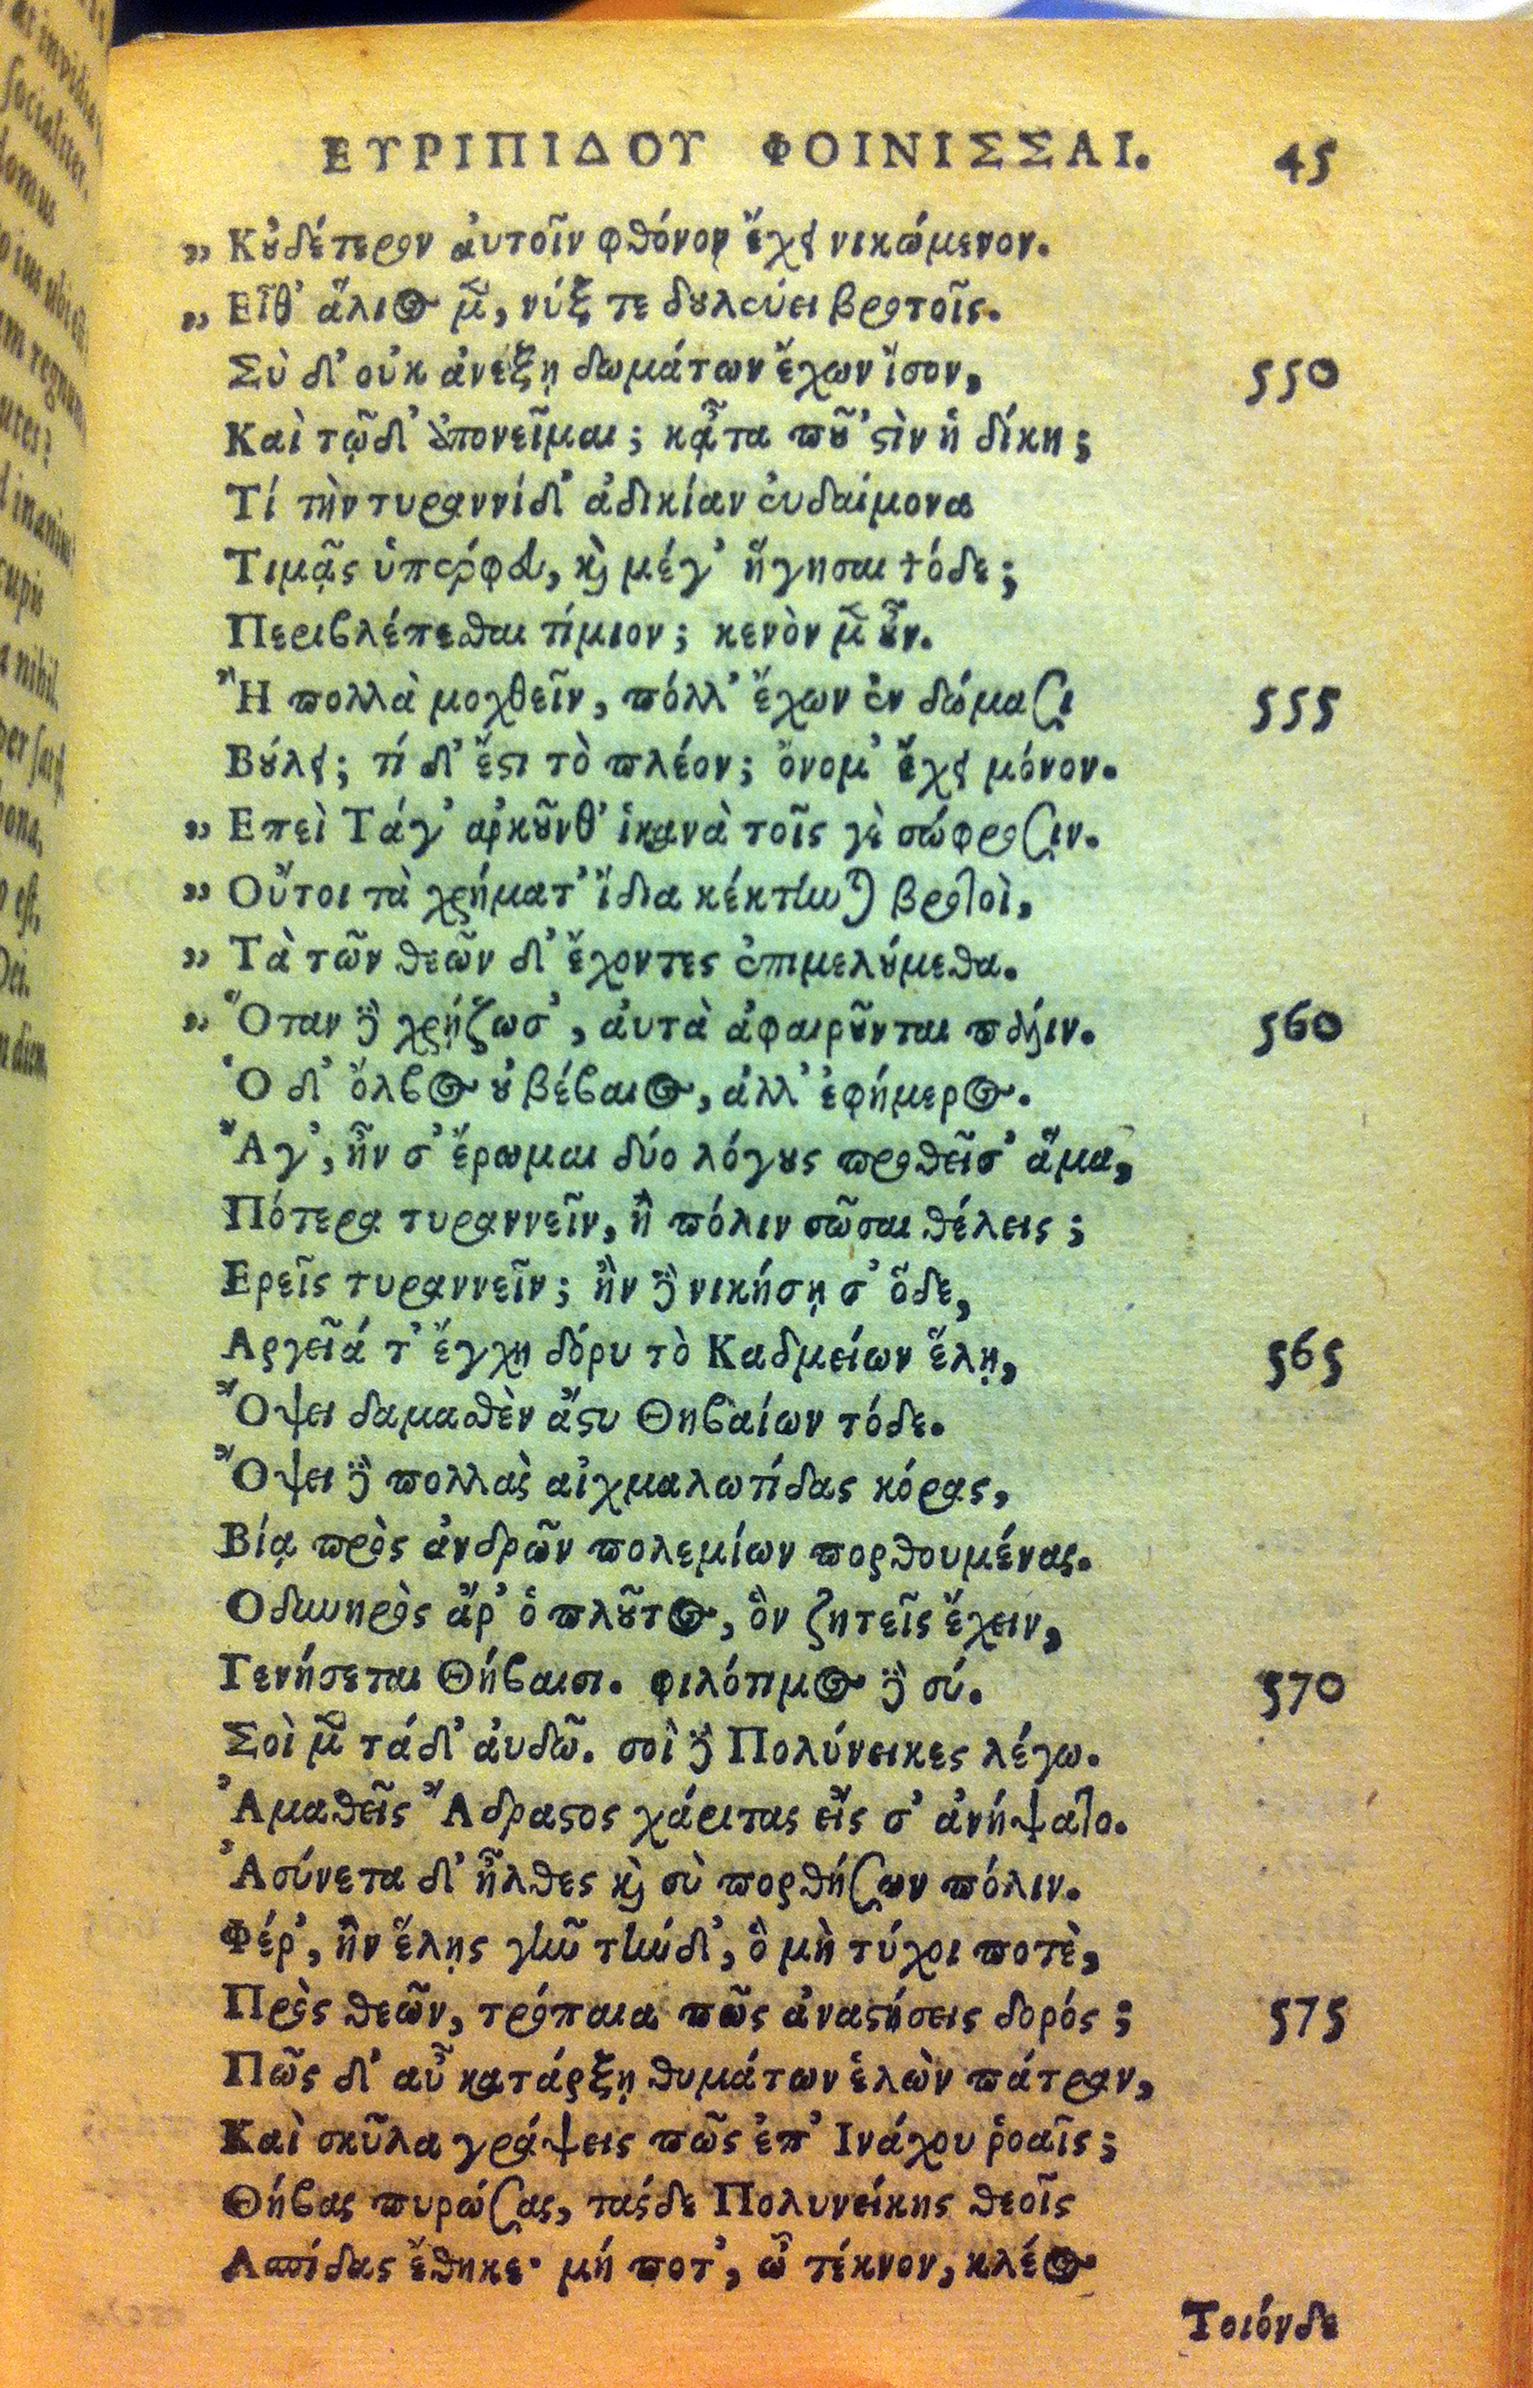 ΕΥΡΙΠΙΔΟΥ ΦΟΙΝΙΣΣΑΙ. 45
„ Κοὐδέτερον αὐτοῖν φθόνον ἔχει νικώμενον.
„ Εἶθ' ἅλιος μὲν, νύξ τε δουλεύει βροτοῖς.
Σὺ δ' οὐκ ἀνέξῃ δωμάτων ἔχων ἴσον, 550
Καὶ τῷδ' ἀπονεῖμαι; κᾆτα ποῦ 'στὶν ἡ δίκη;
Τί τὴν τυραννίδ' ἀδικίαν εὐδαίμονα
Τιμᾷς ὑπέρφευ, καὶ μέγ' ἥγησαι τόδε;
Περιβλέπεσθαι τίμιον; κενὸν μὲν οὖν.
Ἢ πολλὰ μοχθεῖν, πόλλ' ἔχων ἐν δώμασι 555
Βούλει; τί δ' ἔστι τὸ πλέον; ὄνομ' ἔχει μόνον.
„ Επεὶ Τάγ' ἀρκοῦνθ' ἱκανὰ τοῖς γὲ σώφροσιν.
„ Οὔτοι τὰ χρήματ' ἴδια κέκτηνται βροτοὶ,
„ Τὰ τῶν θεῶν δ' ἔχοντες ἐπιμελούμεθα.
„ Ὅταν δὲ χρήζωσ', αὐτὰ ἀφαιροῦνται πάλιν. 560
Ὁ δ' ὄλβος οὐ βέβαιος, ἀλλ' ἐφήμερος.
Ἄγ', ἢν σ' ἔρωμαι δύο λόγους προθεῖσ' ἅμα,
Πότερα τυραννεῖν, ἢ πόλιν σῶσαι θέλεις;
Ερεῖς τυραννεῖν; ἢν δὲ νικήσῃ σ' ὅδε,
Αργεῖά τ' ἔγχη δόρυ τὸ Καδμείων ἕλῃ, 565
Ὄψει δαμασθὲν ἄστυ Θηβαίων τόδε.
Ὄψει δὲ πολλὰς αἰχμαλωτίδας κόρας,
Βίᾳ πρὸς ἀνδρῶν πολεμίων πορθουμένας.
Οδυνηρὸς ἄρ' ὁ πλοῦτος, ὃν ζητεῖς ἔχειν,
Γενήσεται Θήβαισι. φιλότιμος δὲ σύ. 570
Σοὶ μὲν τάδ' αὐδῶ. σοὶ δὲ Πολύνεικες λέγω.
Ἀμαθεῖς Ἄδραστος χάριτας εἴς σ' ἀνήψατο.
Ἀσύνετα δ' ἦλθες καὶ σὺ πορθήσων πόλιν.
Φέρ', ἢν ἕλῃς γῆν τήνδ', ὃ μὴ τύχοι ποτὲ,
Πρὸς θεῶν, τρόπαια πῶς ἀναστήσεις δορός; 575
Πῶς δ' αὖ κατάρξῃ θυμάτων ἑλὼν πάτραν,
Καὶ σκῦλα γράψεις πῶς ἐπ' Ινάχου ῥοαῖς;
Θήβας πυρώσας, τάσδε Πολυνείκης θεοῖς
Ασπίδας ἔθηκε· μή ποτ', ὦ τέκνον, κλέος
Τοιόνδε